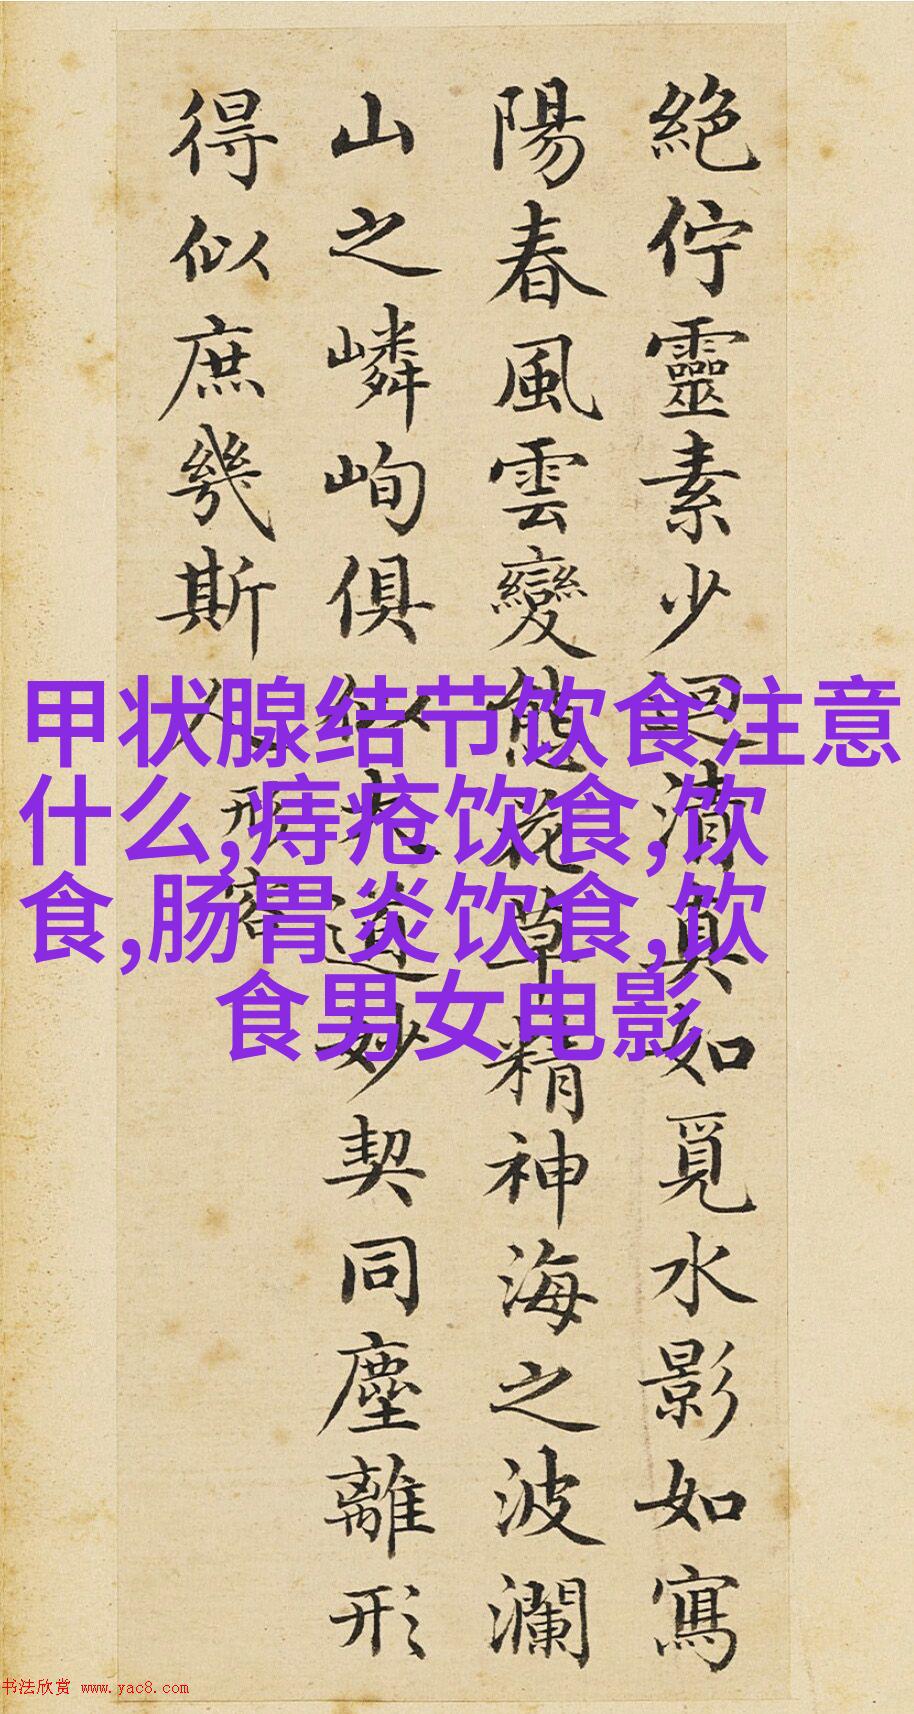 絕佇靈素少迴清真如覓水影如寫
陽春風雲變態花草精神海之波瀾
山之嶙峋俱似大道妙契同塵離形
得似庶幾斯人
形容
甲状腺结节饮食注意
什么,痔疮饮食,饮
食,肠胃炎饮食,饮
食男女电影
书法欣赏 www.yac8.com